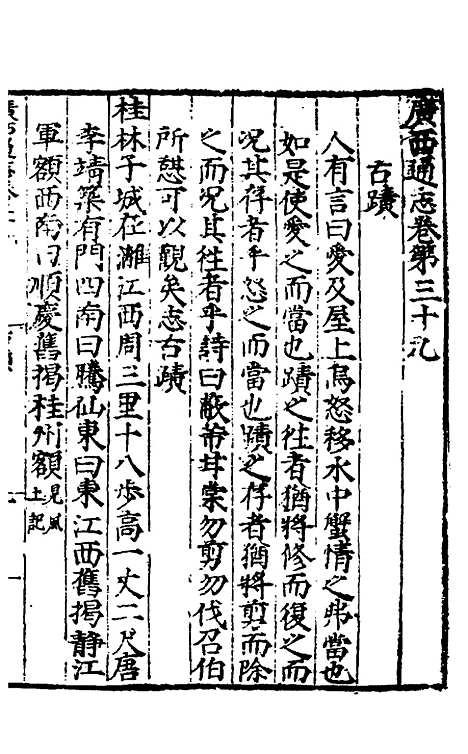 廣西通志卷第三十九
古蹟
人有言曰愛及屋上烏怒移水中蟹情之弗當也
如是使愛之而當也蹟之徃者猶將修而復之而
况其存者乎怒之而當也蹟之存者猶將剪而除
之而况其徃者乎詩曰蔽芾甘棠勿剪勿伐召伯
所憇可以觀矣志古蹟
桂林子城在灕江西周三里十八步高一丈二尺唐
李靖築有門四南曰騰仙東曰東江西舊揭靜江
軍額西南曰順慶舊揭桂州額見風土記